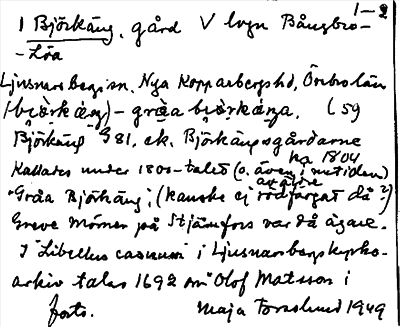 1–2
1 Björkäng, gård V lvgn Bångbro–
–Löa
Ljusnars Bergsn. Nya Kopparbergs hd, Örebro län
(bjö̀rkäŋ) – gråa bjö̀rkäŋa. L 59
Björkäng G 81, ek. Björkängsgårdarne
ha 1804
Kallades under 1800-talet (o. även i nutiden)
av äldre
"Gråa Björkäng", (kanske ej rödfärgat då?)
Greve Mörner på Stjärnfors var då ägare.
I "Libellus casuum" i Ljusnarsbergs kyrko-
arkiv talas 1692 om "Olof Matsson i
forts. Maja Forsslund 1949